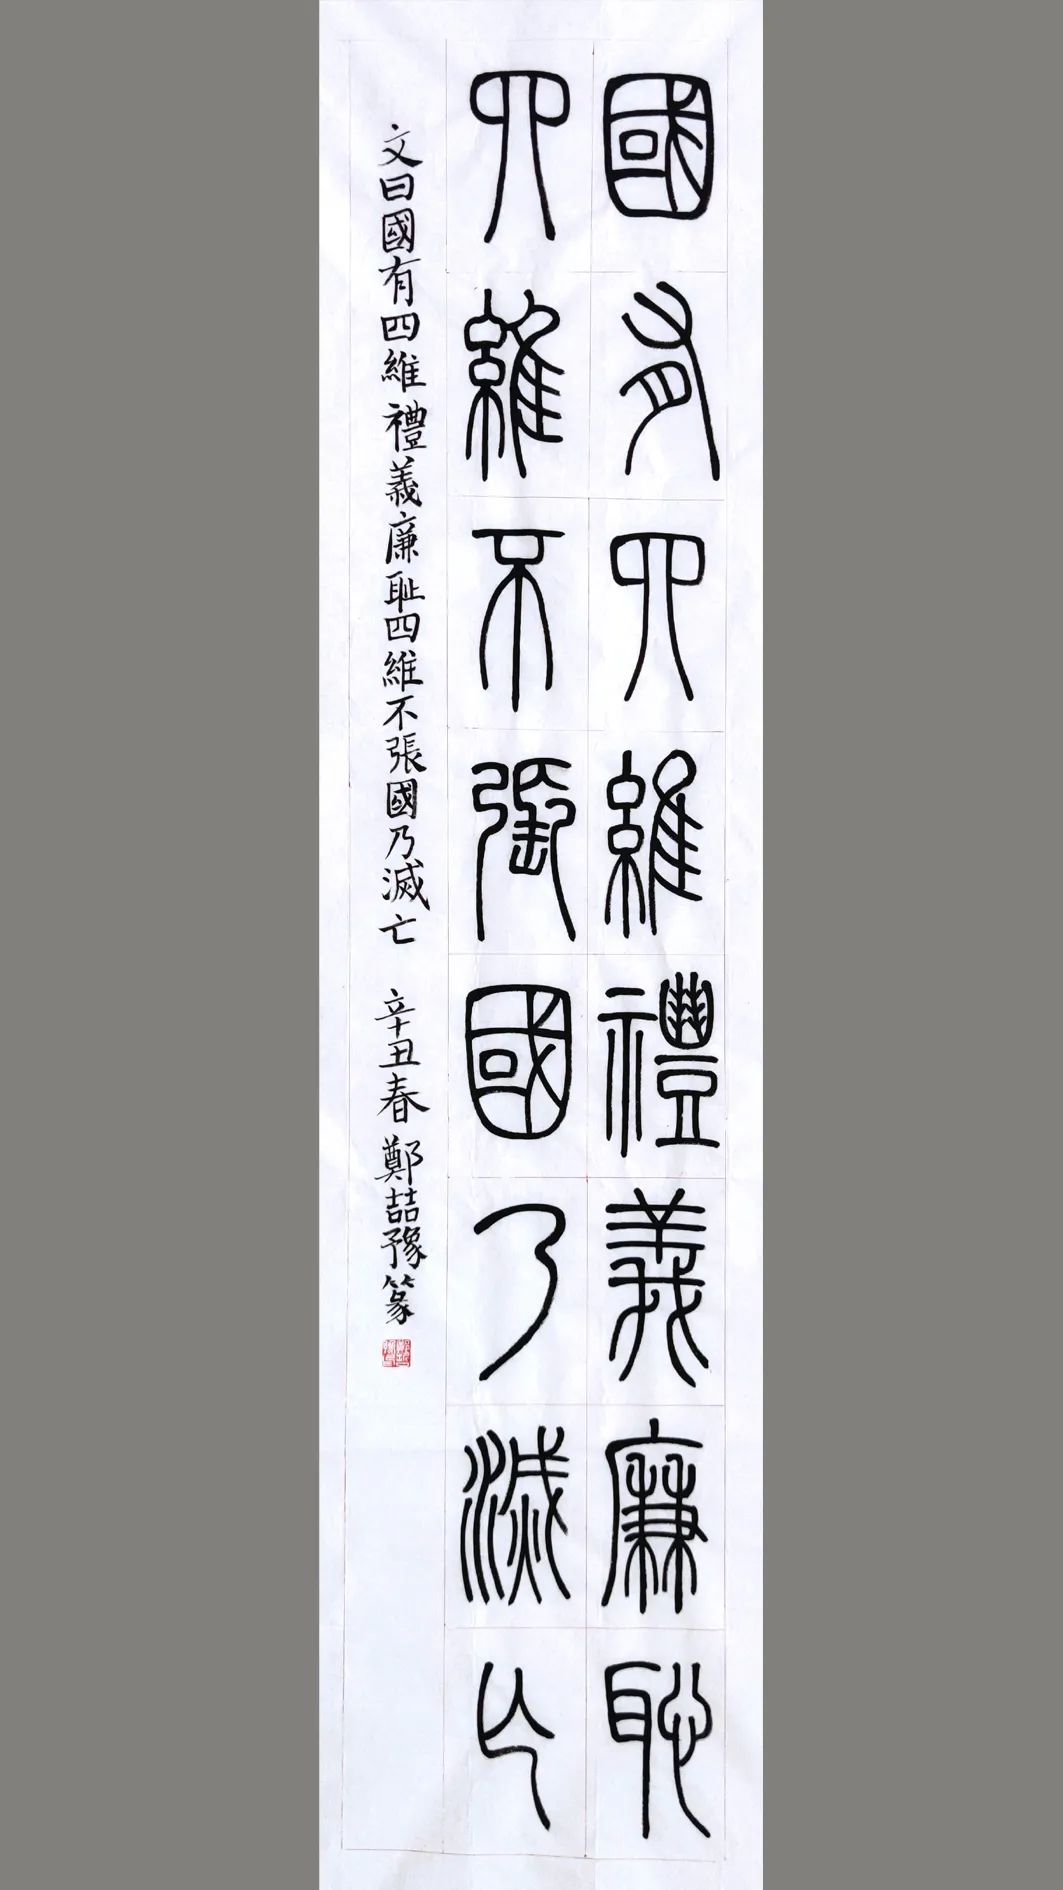 國有四維禮義廉恥
四維不張國乃滅亡
文曰國有四維禮義廉耻四維不張國乃滅亡 辛丑春鄭喆豫篆